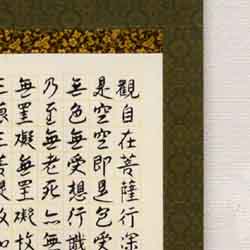 觀自在菩薩行深
是空空即是色受
無色無受想行識
乃至無老死亦無
無罣礙無罣礙故